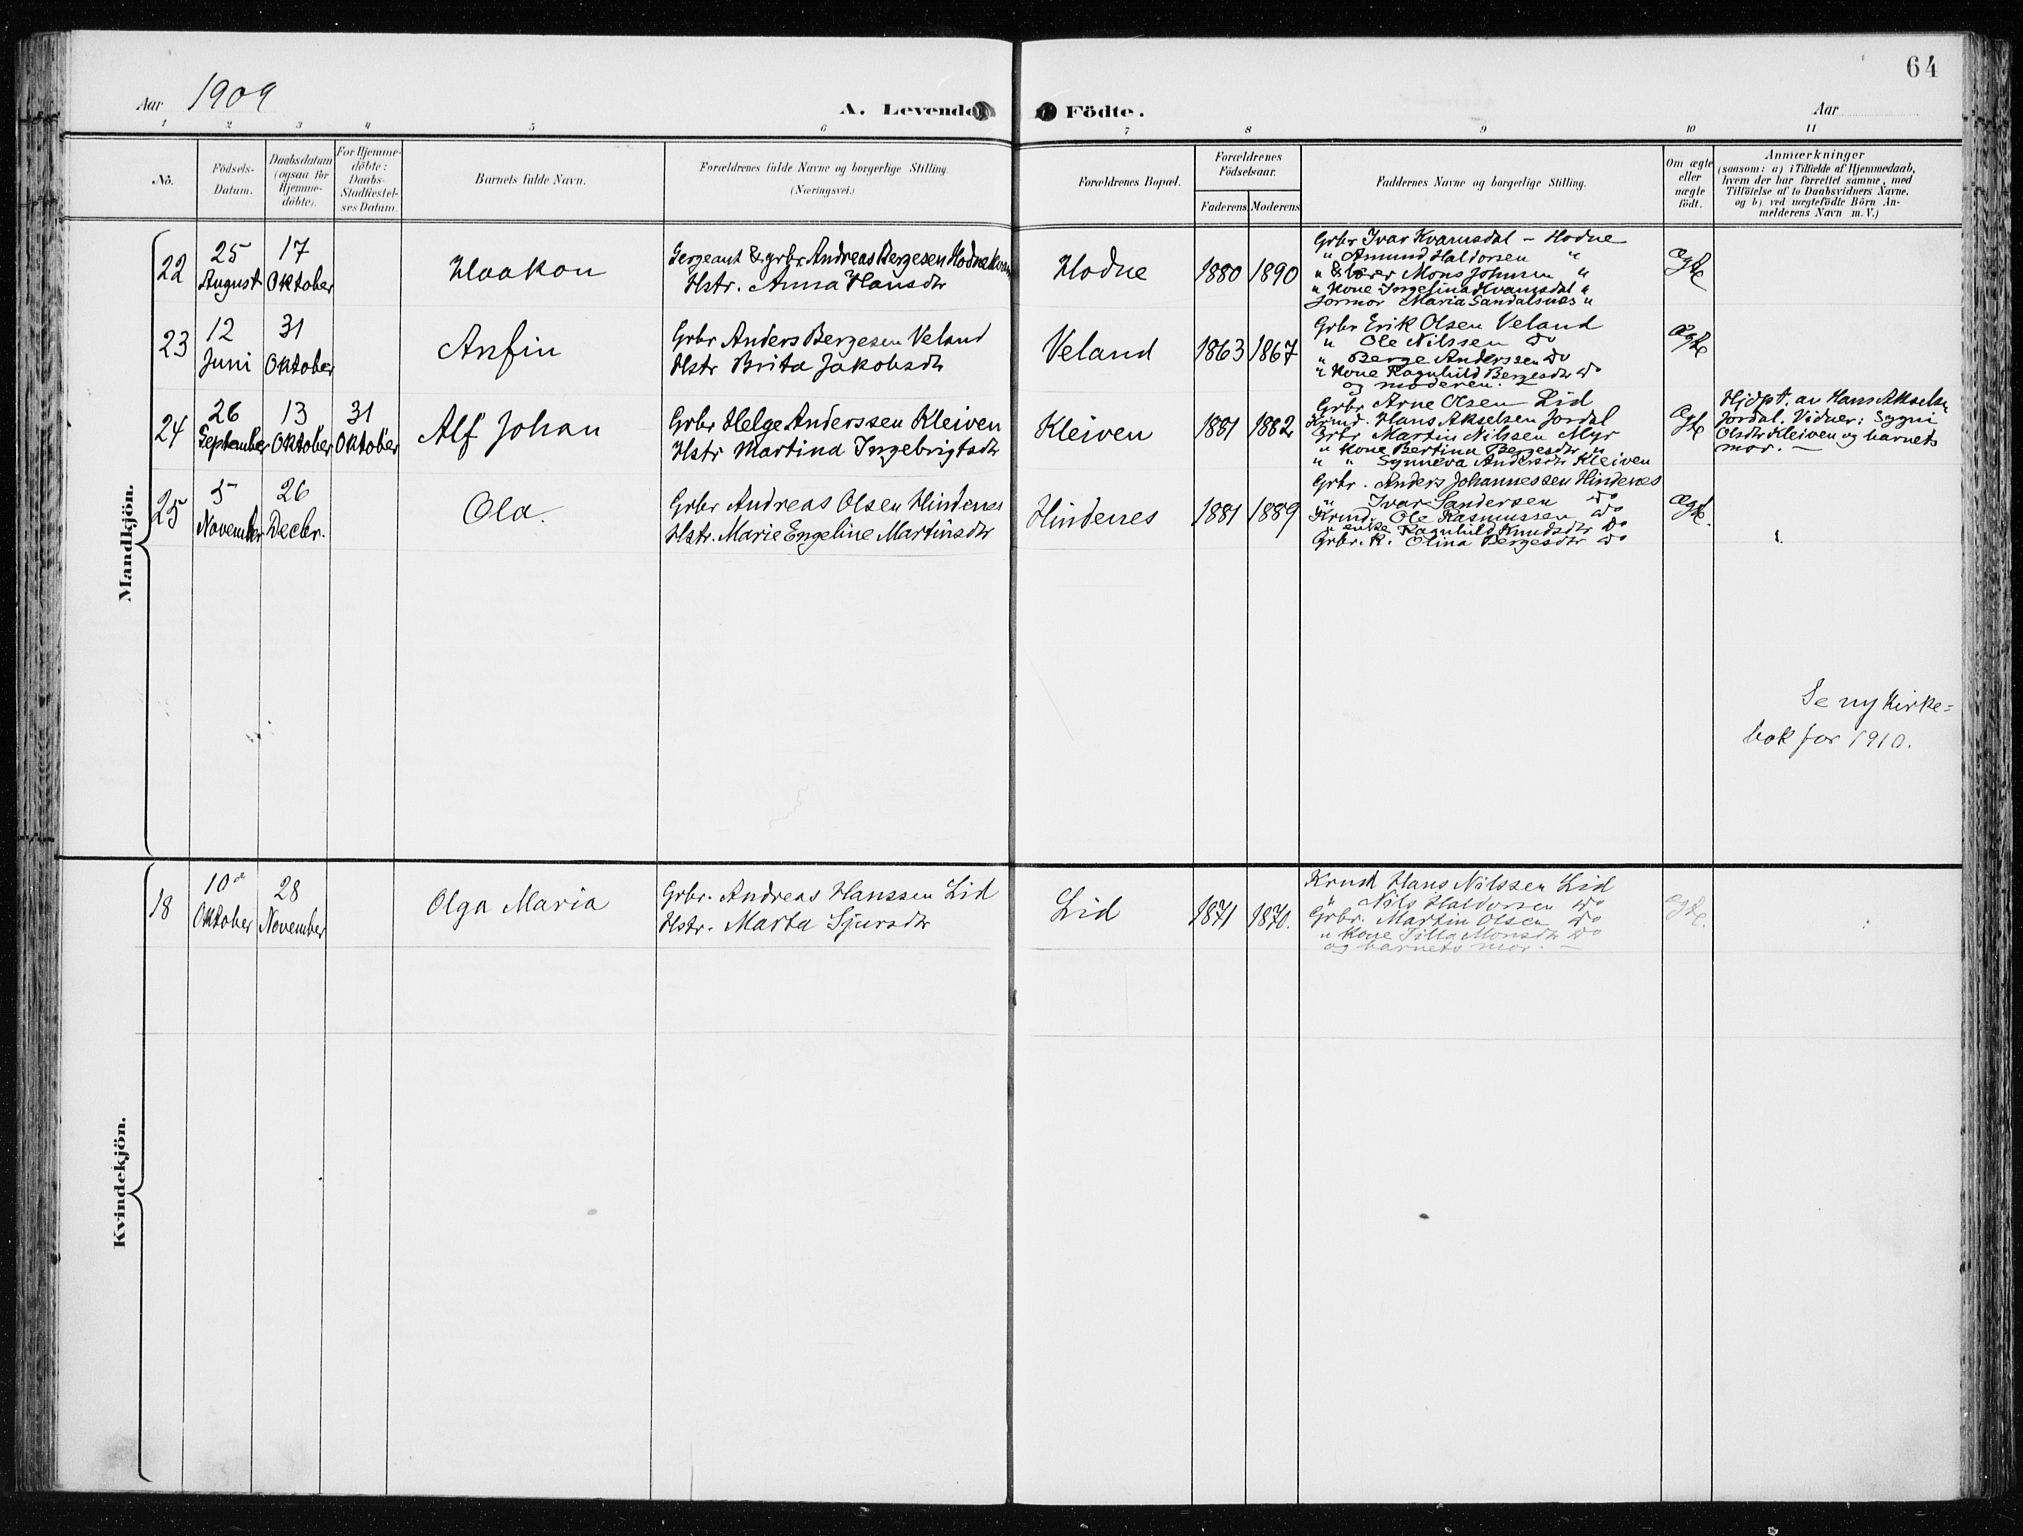 64
Aar 1909
A. Levende Födte.
Aar
1 2 3 4 5 6 7 8 9 10 11
No.
Födsels-
Datum.
Daabsdatum
(ogsaa for
Hjemme-
döbte).
For Hjemme-
döbte:
Daabs-
Stadfæstel-
ses Datum.
Barnets fulde Navn.
Forældrenes fulde Navne og borgerlige Stilling.
(Næringsvei.)
Forældrenes Bopæl.
Forældrenes
Födselsaar.
Faderens Moderens
Faddernes Navne og borgerlige Stilling.
Om ægte
eller
uægte
födt.
Anmærkninger
(saasom: a) i Tilfælde af Hjemmedaab,
hvem der har forrettet samme, med
Tilföielse af to Daabsvidners Navne,
og b) ved uægtefödte Börn An-
melderens Navn m. V.)
Mandkjön.
22
25
August
17
Oktober
Haakon
Sergeant & grbr. Andreas Bergesen Hodne Kvam
Hstr. Anna Hansdtr
Hodne
1880 1890
Grbr Ivar Kvamsdal - Hodne
" Amund Haldorsen "
" & lærer Mons Johnsen "
" Kone Ingelina Kvamsdal "
Formor Maria Sandalsnes "
ægte
23
12
Juni
31
Oktober
Anfin
Grbr Anders Bergesen Veland
Hstr Brita Jakobsdtr
Veland
1863 1867
Grbr Erik Olsen Veland
" Ole Nilssen do
" Berge Anderssen do
" Kone Ragnhild Bergesdtr do
og moderen.
ægte
24
26
September
13
Oktober
31
Oktober
Alf Johan
Grbr Helge Anderssen Kleiven
Hstr Martina Ingebrigtsdtr
Kleiven
1881 1882
Grbr. Arne Olsen Lid
Krmd. Hans Akselsen Jordal
Grbr Martin Nilssen Myr
" Kone Bertina Bergesdtr "
" " Synneva Andersdtr Kleiven
ægte
Hjdpt. av Hans Akselsen
Jordal. Vidner: Sygni
Olsdtr Kleiven og barnets
mor. —
25
5
November
26
Decbr.
Ola.
Grbr Andreas Olsen Hindenes
Hstr. Marie Engeline Martinsdtr
Hindenes
1881 1889
Grbr. Anders Johannessen Hindenes
" Ivar Sandersen do
Krmd. Ole Rasmussen do
" enke Ragnhild Knudsdtr do
Grbr. K. Olina Bergesdtr do
ægte.
Se ny Kirke=
bok for 1910.
Kvindekjön.
18
10
Oktober
28
November
Olga Maria
Grbr. Andreas Hanssen Lid
Hstr. Marta Sjursdtr
Lid
1871 1870.
Krmd Hans Nilssen Lid
" Nils Haldorsen do
Grbr. Martin Olsen do
" Kone Tilla Monsdtr do
og barnets mor. —
ægte.